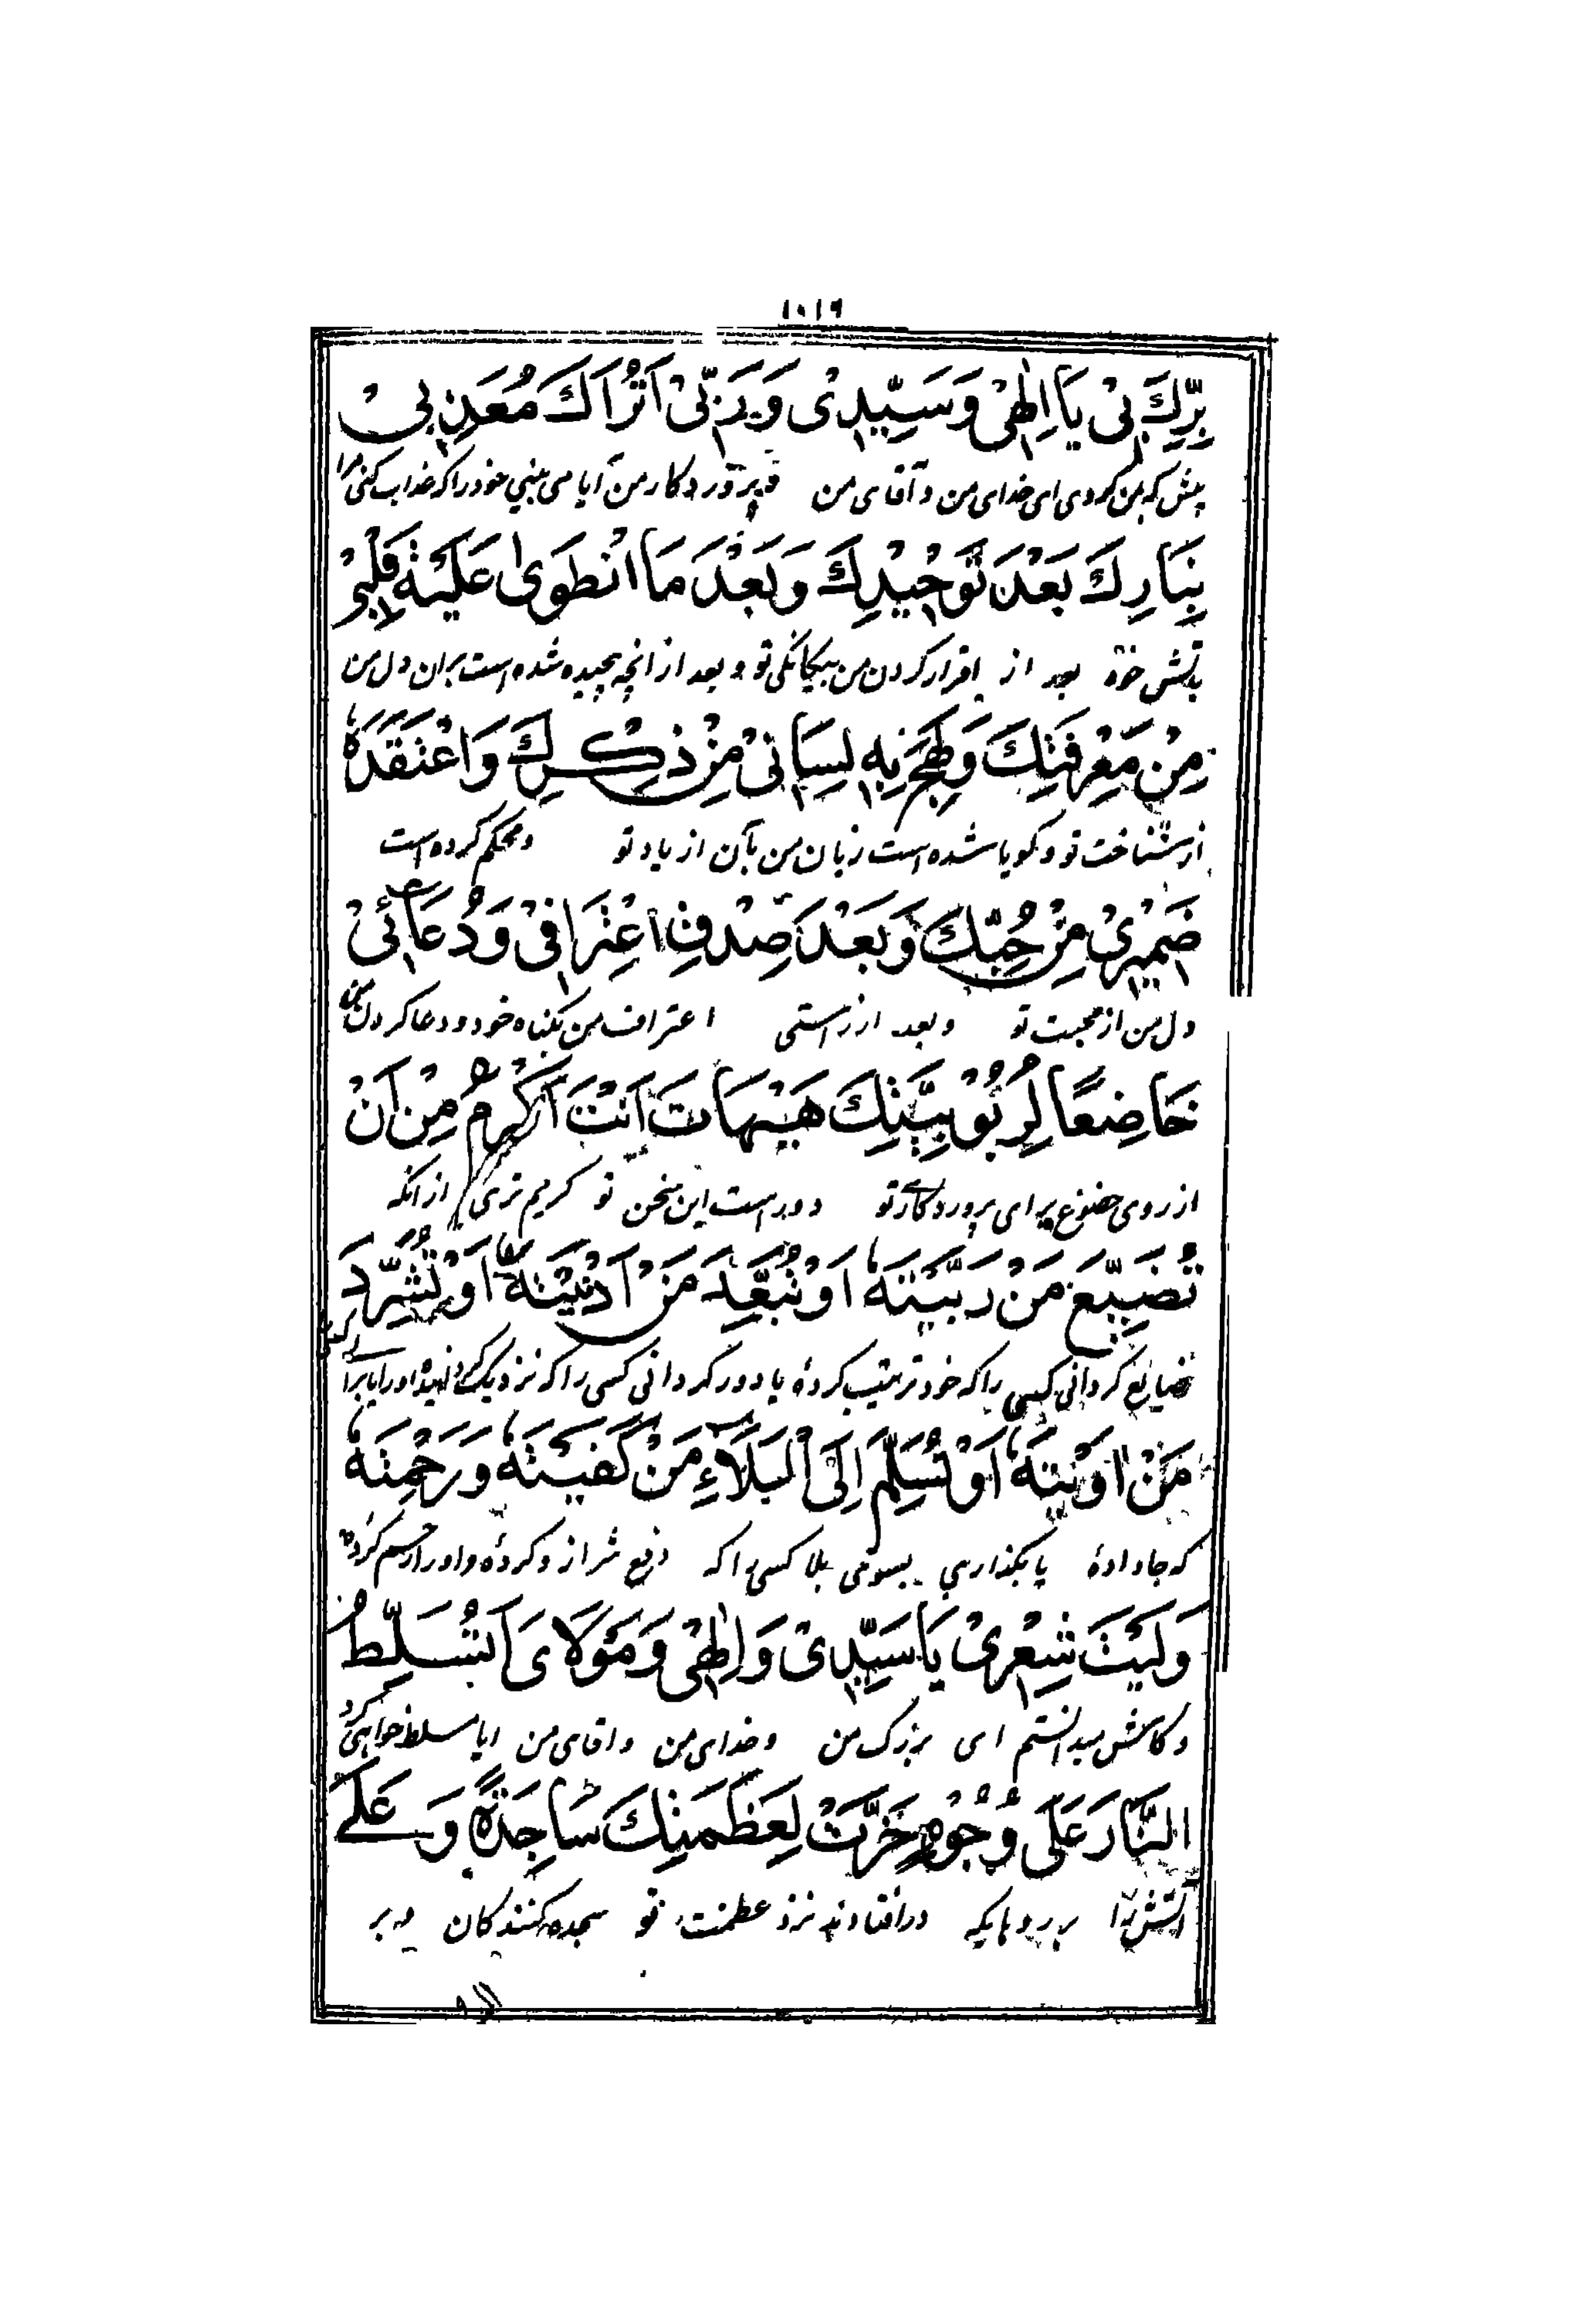 ١٠١٩
بِرِّكَ بِیْ یَا اِلٰهِیْ وَسَیِّدِیْ وَرَبِّیْ اَتُرَاكَ مُعَذِّبِیْ
پیش که بمن کردی ای خدای من و آقای من و پروردکار من آیا می بینی خود را که عذاب کنی مرا
بِنَارِكَ بَعْدَ تَوْحِیْدِكَ وَبَعْدَ مَا انْطَوٰی عَلَیْهِ قَلْبِیْ
بآتش خود بعد از اقرار کردن من بیکانکی تو و بعد از انچه پیچیده شده است بران دل من
مِنْ مَعْرِفَتِكَ وَلَهِجَ بِهٖ لِسَانِیْ مِنْ ذِكْرِكَ وَاعْتَقَدَهٗ
از شناخت تو و کویا شده است زبان من بآن از یاد تو و محکم کرده است
ضَمِیْرِیْ مِنْ حُبِّكَ وَبَعْدَ صِدْقِ اعْتِرَافِیْ وَدُعَائِیْ
دل من از محبت تو و بعد از راستی اعتراف من بکناه خود و دعا کردن من
خَاضِعًا لِرُبُوْبِیَّتِكَ هَیْهَاتَ اَنْتَ اَكْرَمُ مِنْ اَنْ
از روی خضوع برای پروردکاری تو دور است این سخن تو کریم تری از انکه
تُضَیِّعَ مَنْ رَبَّیْتَهٗ اَوْ تُبَعِّدَ مَنْ اَدْنَیْتَهٗ اَوْ تُشَرِّدَ
ضایع کردانی کسی را که خود تربیت کردهٔ یا دور کردانی کسی را که نزدیک
مَنْ اٰوَیْتَهٗ اَوْ تُسَلِّمَ اِلَی الْبَلَاءِ مَنْ كَفَیْتَهٗ وَرَحِمْتَهٗ
که جا دادهٔ یا بکذاری بسوی بلا کسی را که دفع شر از و کردهٔ و او را رحم کردهٔ
وَلَیْتَ شِعْرِیْ یَا سَیِّدِیْ وَاِلٰهِیْ وَمَوْلَایَ اَتُسَلِّطُ
و کاش میدانستم ای بزرک من و خدای من و اقای من ایا مسلط خواهی کرد
النَّارَ عَلٰی وُجُوْهٍ خَرَّتْ لِعَظَمَتِكَ سَاجِدَةً وَعَلٰی
آتش را بر روهایکه درافتادند نزد عظمت تو سجده کنندکان و بر